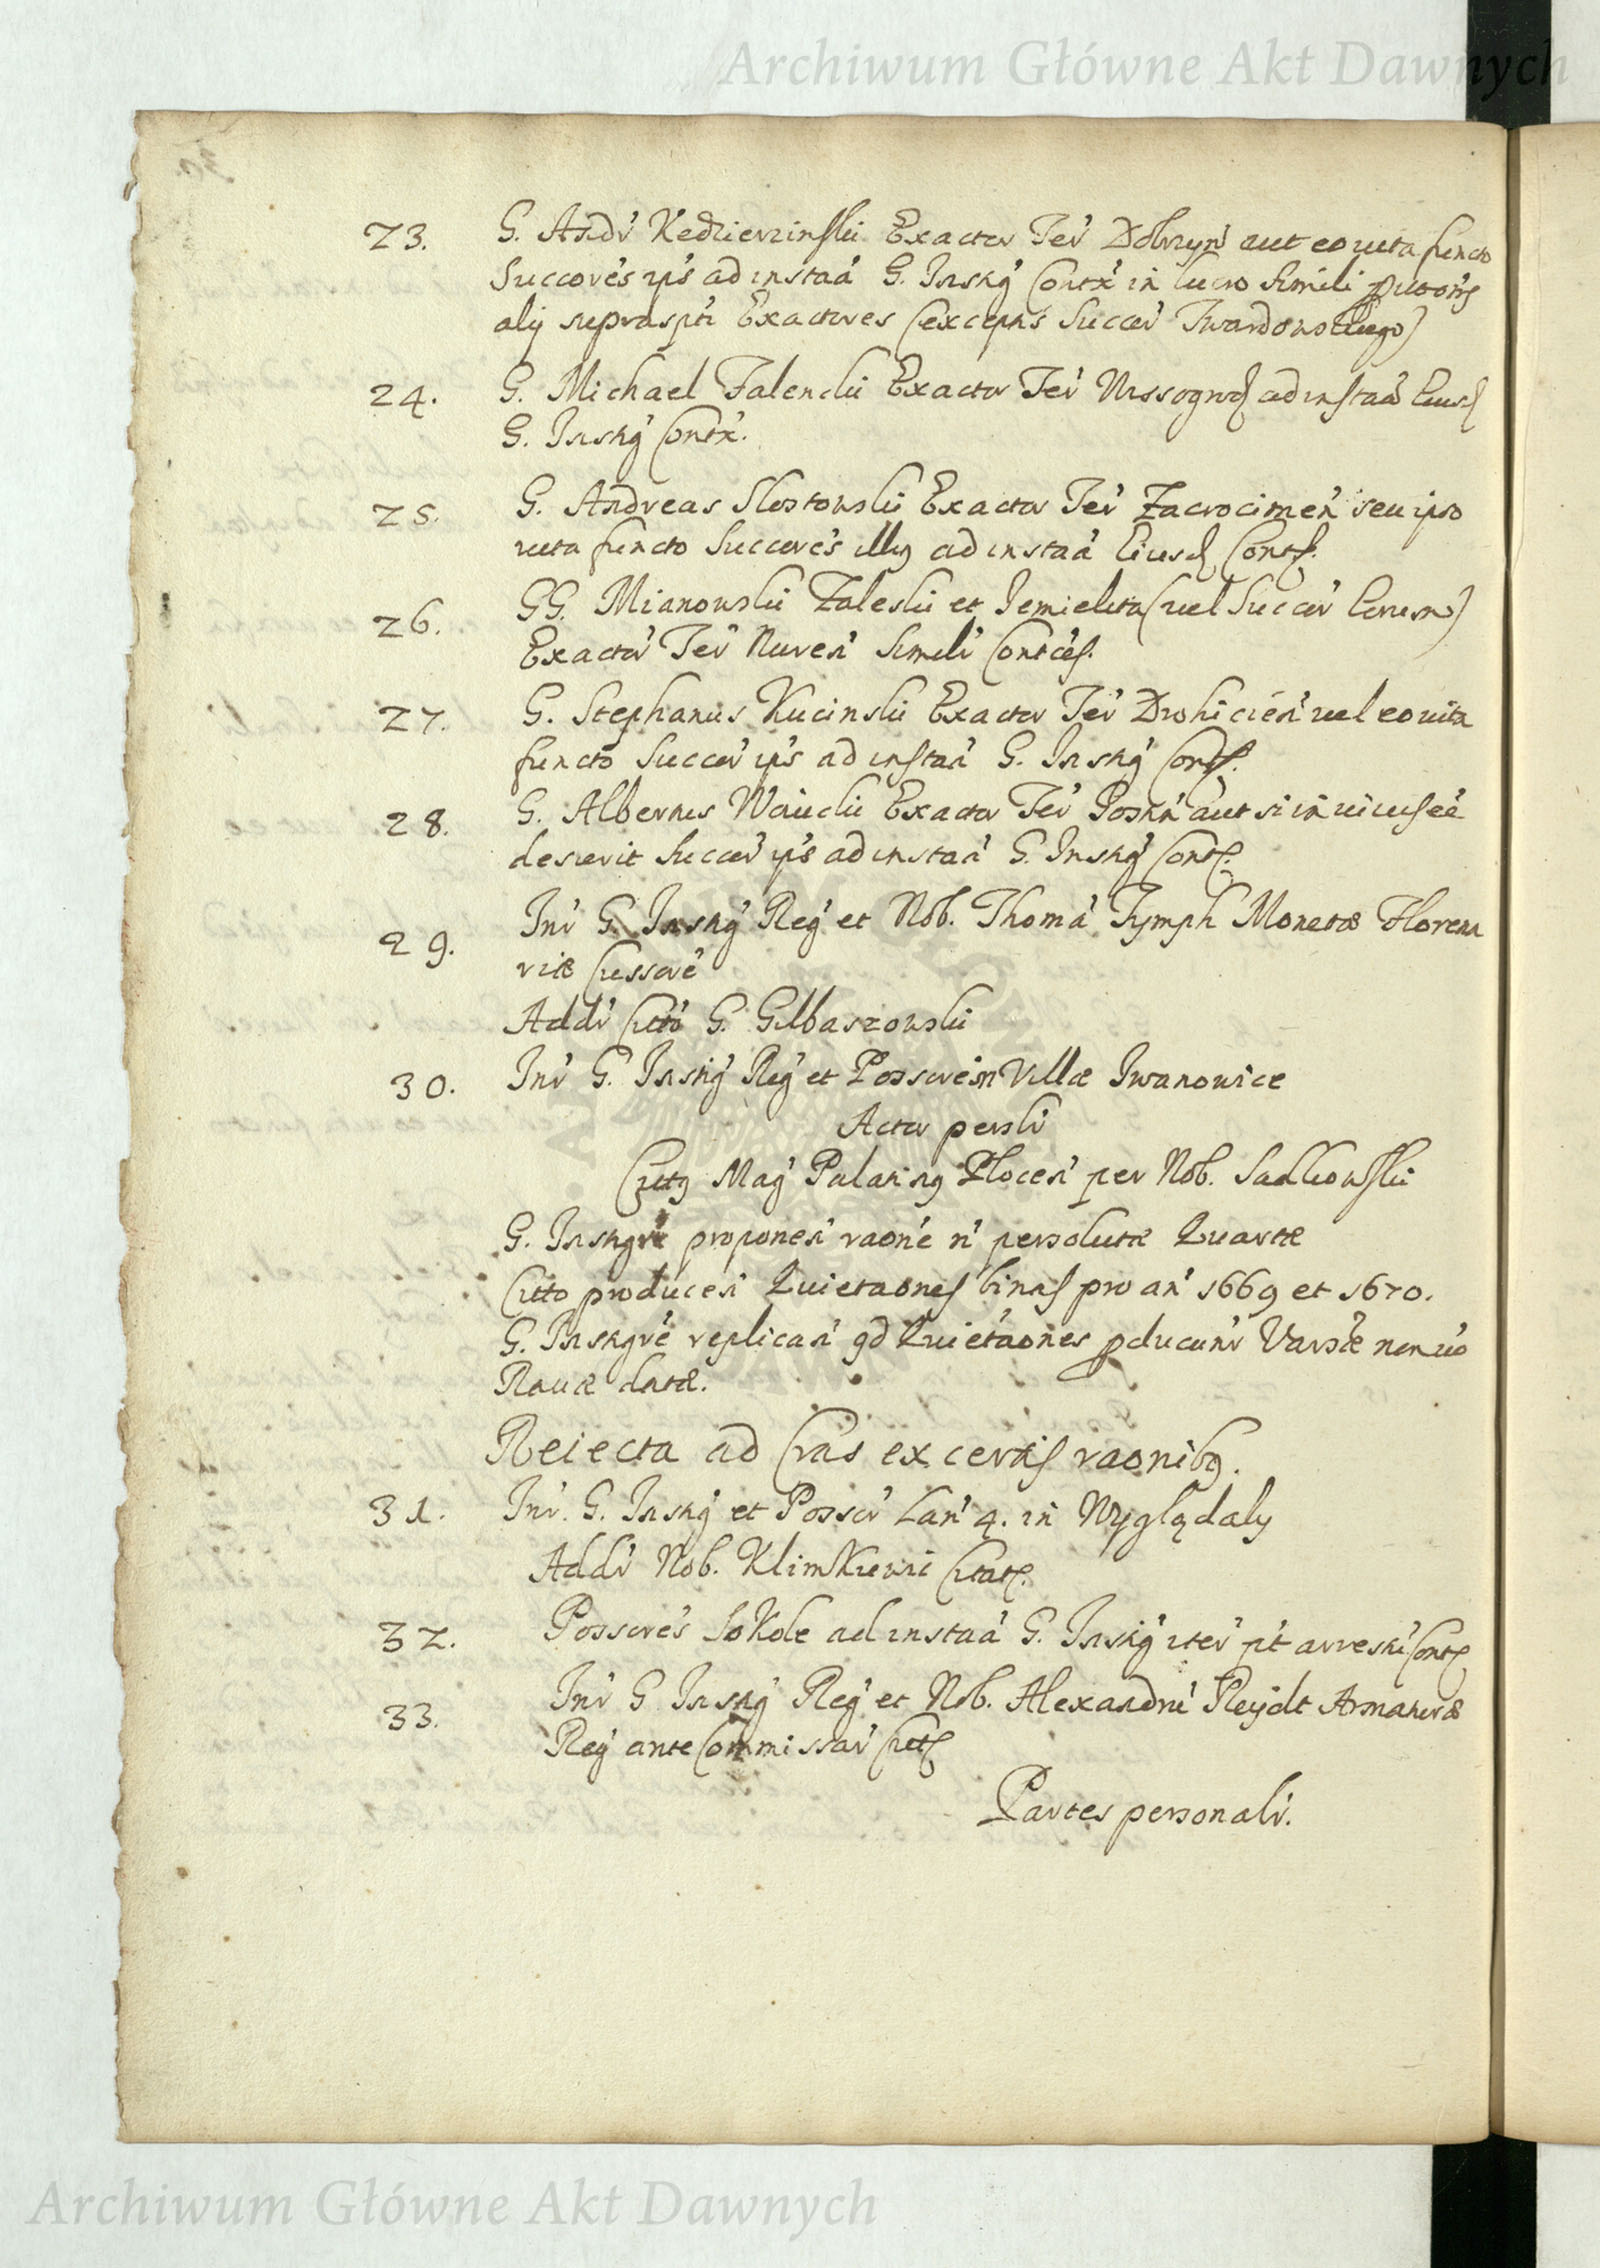 Archiwum Główne Akt Dawnych
23. G. Andr' Kedzierzinskii Exactor Ter' Dobrzyn' aut eo vita functo
Succores ips' ad insta'a G. Inskg' Cont' in lucro simili
alij suprasp'ti Exactores (exceptis Succor' Twardowskiego)
24. G. Michael Zalenskii Exactor Ter' Wissogrod ad instaa' Eiusd
G. Inskg' Cont'.
25. G. Andreas Slostowskii Exactor Ter' Zacrocimen' seu ipso
vita functo Succores illg ad instaa' Eiusd Cont.
26. GG. Mianowskii Zaleskii et Jemielita (vel Succor' Eorum)
Exactor' Ter' Nuren' Simili'
27. G. Stephanus Kucinskii Exactor Ter' Drohicien' vel eo vita
functo Succor' ips' ad instaa' G. Inskg' Cont.
28. G. Albertus Exactor Ter' Posnn' aut si in vivis ee'
desierit Succor' ips' ad instaa' G. Inskg' Cont.
29. Inr' G. Inskg' Reg' et Nob. Thoma' Tymph Monetæ Florena
riæ Cussore'
Addr' Citto' G. Gelbaszowskii
30. Inr' G. Inskg' Reg' et Possorem Villæ Iwanowice
Actor persli'
Cittg Mag' Palating Plocen' per Nob. Sadkowskii
G. Inskgre' proponen' raone' n' persolutæ Quartæ
Citto producen' Quietaones binas pro an' 1669 et 1670.
G. Inskgre' replican' qd Quietaones pducunr' Varsæ non vo'
Ravæ datæ.
Reiecta ad Cras ex certis raonibg.
31. Inr'. G. Inskg' et Possor' Lan' 4. in Wyględaly
Addr' Nob. Klimkiewic Citatg.
32. Possores Sokole ad instaa' G. Inskg' iter' pt' arresti Cont
33. Inr' G Inskg' Reg' et Nob. Alexandru' Reydt Armaturæ
Reg' ante Commissar' Citt
Partes personalr'.
Archiwum Główne Akt Dawnych